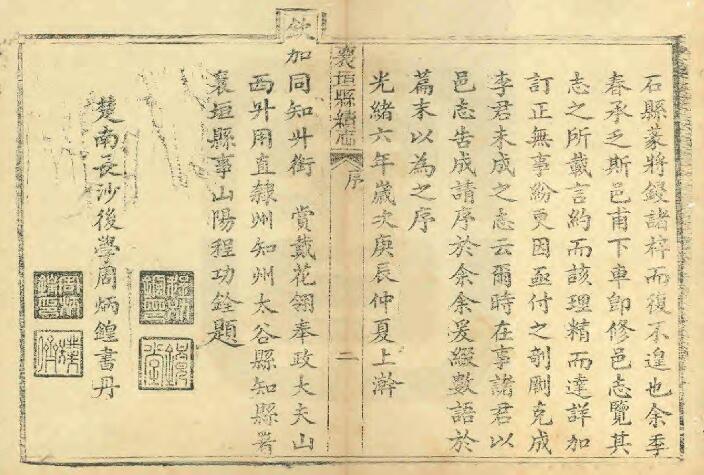 石縣篆將鋟諸梓而復不遑也余季
春承乏斯邑甫下車即修邑志覽其
志之所載言約而該理精而達詳加
訂正無事紛更因亟付之剞劂克成
李君未成之志云爾時在事諸君以
邑志告成請序於余余爰綴數語於
篇末以為之序
光緒六年歲次庚辰仲夏上澣
襄垣縣續志
序
二
欽加同知升銜 賞戴花翎奉政大夫山
西升用直隸州知州太谷縣知縣署
襄垣縣事山陽程功銓題
楚南長沙後學周炳鍠書丹